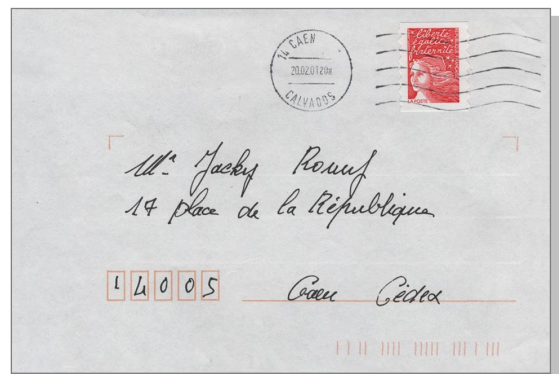 14 CAEN
20.02.01 20H
CALVADOS
liberté
égalité
fraternité
LA POSTE
Mr Jacky
17 place de la République
14005 Caen Cédex